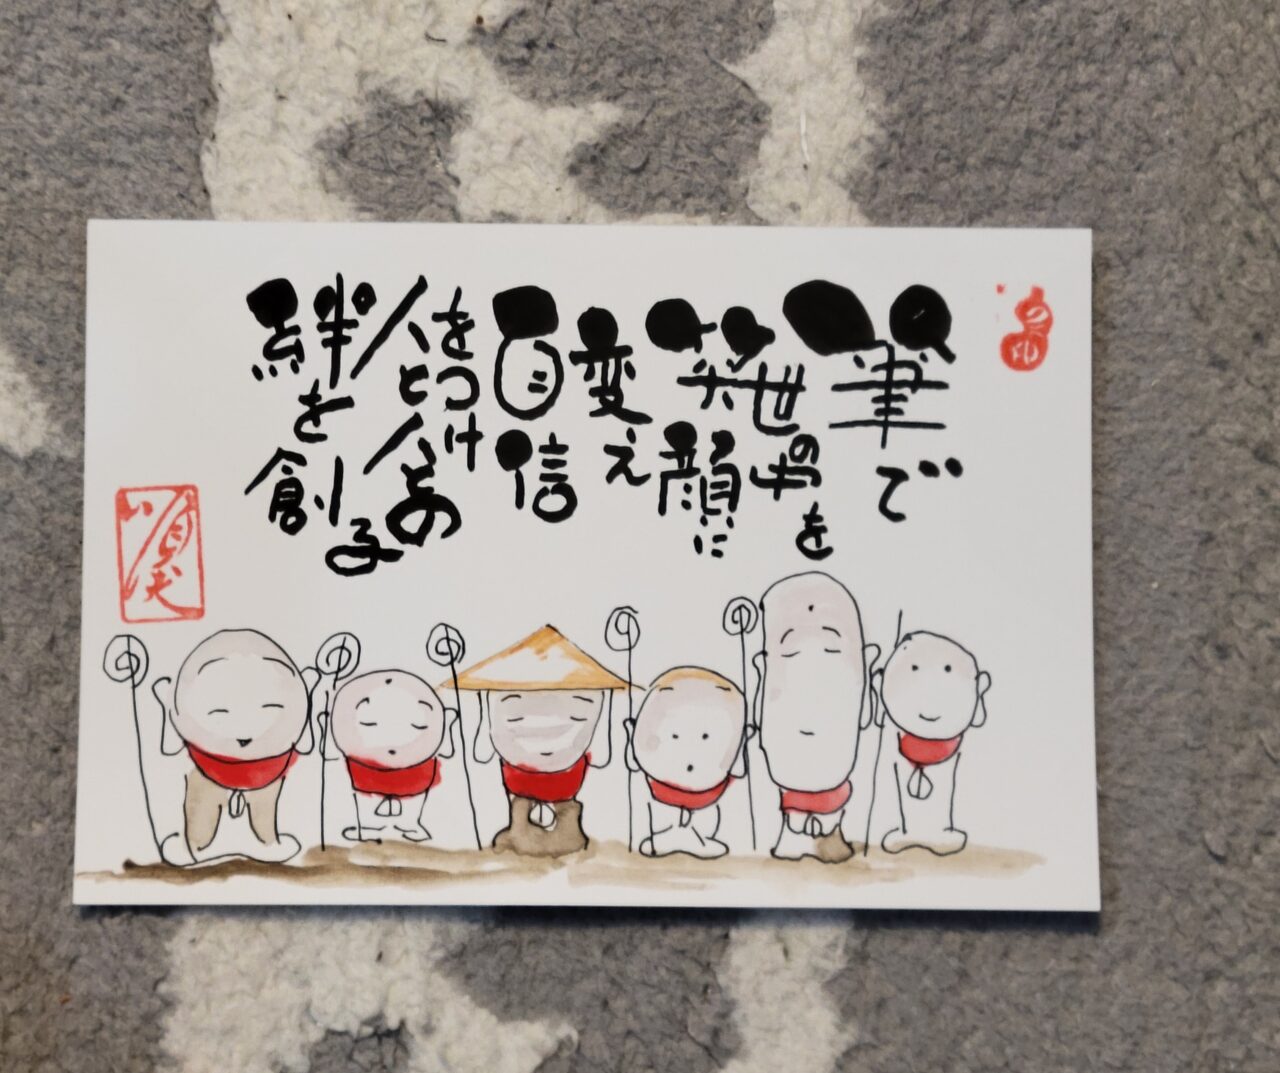 筆で
世の中を
笑顔に
変え
自信
をつけ
人と人との
絆を創る